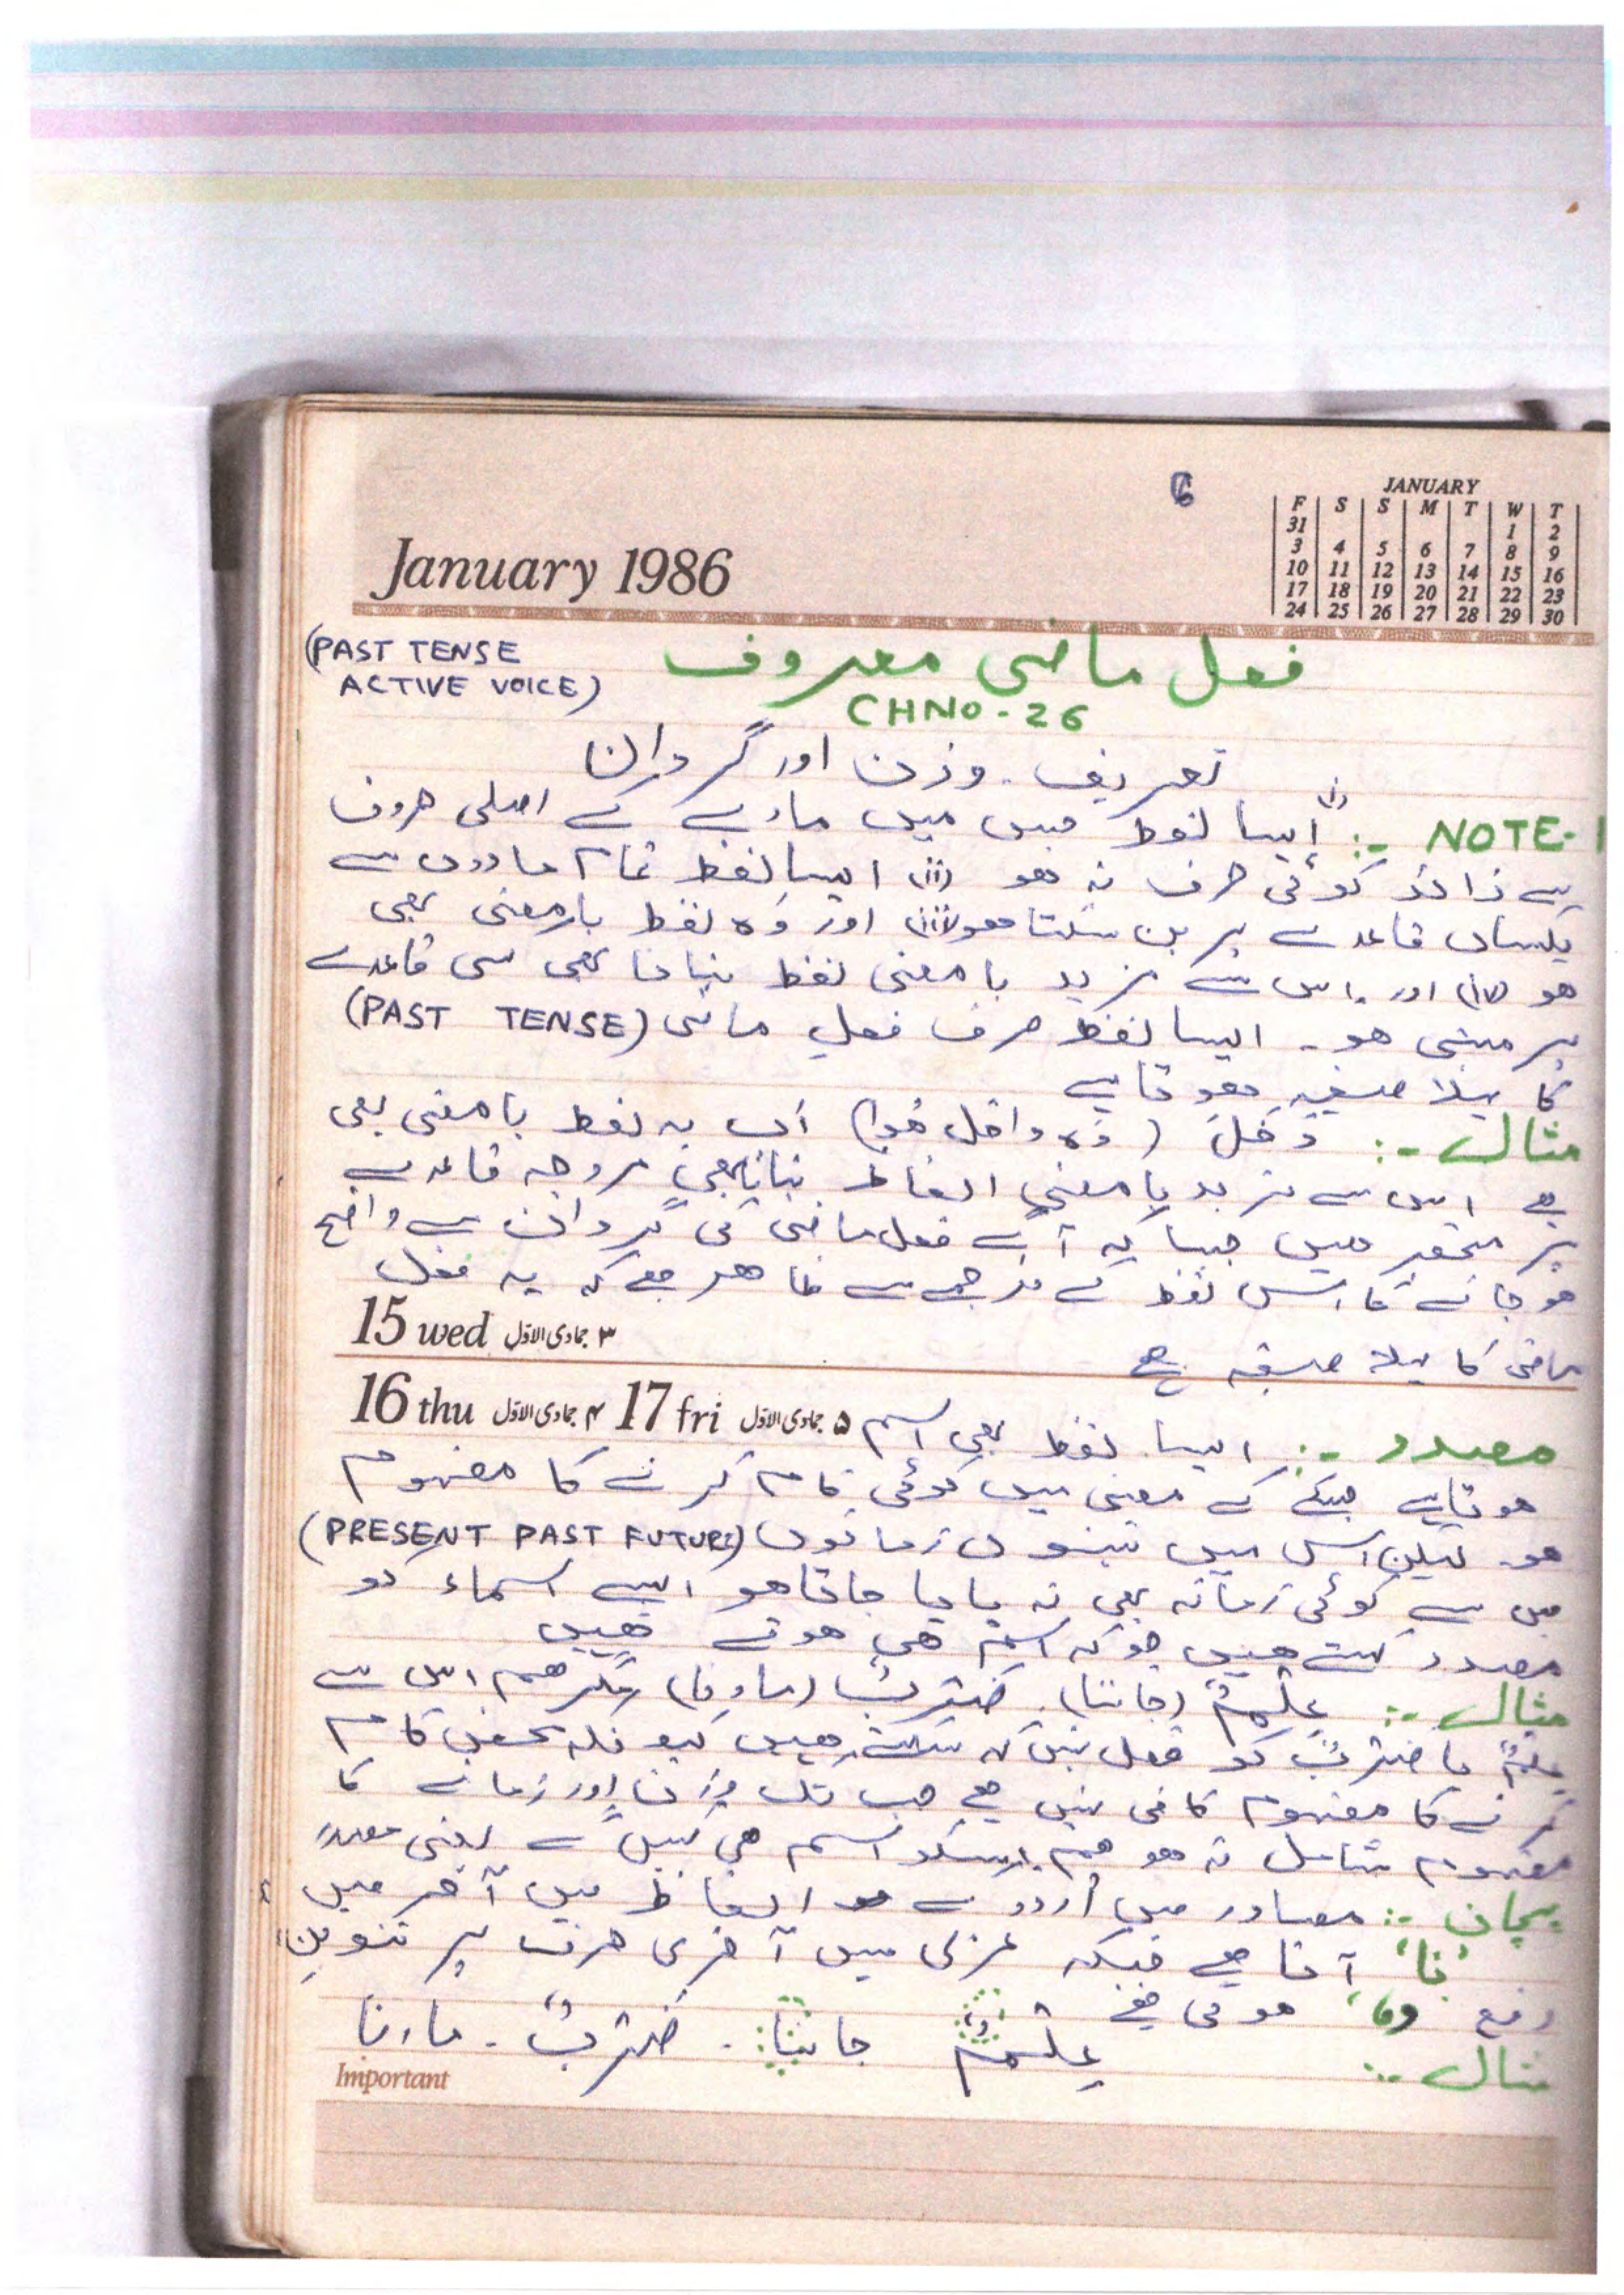 6
JANUARY
F S S M T W T
31 1 2
3 4 5 6 7 8 9
10 11 12 13 14 15 16
17 18 19 20 21 22 23
24 25 26 27 28 29 30
January 1986
(PAST TENSE
ACTIVE VOICE)
فعل ماضی معروف
CHNO-26
تعریف۔ وزن اور گردان
NOTE-1 :- (i) ایسا لفظ جس میں مادے کے اصلی حروف
سے زائد کوئی حرف نہ ھو (ii) ایسا لفظ تمام مادوں سے
یکساں قاعدے پر بن سکتا ھو (iii) اور وہ لفظ با معنی بھی
ھو (iv) اور اس سے مزید با معنی لفظ بنانا بھی کسی قاعدے
پر مبنی ھو۔ ایسا لفظ صرف فعل ماضی (PAST TENSE)
کا پہلا صیغہ ھوتا ہے
مثال :- دَخَلَ (وہ داخل ھوا) اب یہ لفظ با معنی بھی
ہے اس سے مزید با معنی الفاظ بنانا بھی مروجہ قاعدے
پر منحصر ھیں جیسا کہ آپ فعل ماضی کی گردان سے واضح
ھو جائے گا اس لفظ کے ترجمے سے ظاھر ھے کہ یہ فعل
15 wed ۳ جمادی الاوّل
ماضی کا پہلا صیغہ ھے
16 thu ۴ جمادی الاوّل 17 fri ۵ جمادی الاوّل
مصدر :- ایسا لفظ بھی اسم
ھوتا ہے جسکے کے معنی میں کوئی کام کرنے کا مفہوم
ھو۔ لیکن اس میں تینوں زمانوں (PRESENT PAST FUTURE)
میں سے کوئی زمانہ بھی نہ پایا جاتا ھو ایسے اسماء کو
مصدر کہتے ھیں جو کہ اسم ھی ھوتے ھیں
مثال :- عِلْمٌ (جاننا)۔ ضَرْبٌ (مارنا) مگر ھم اس سے
عِلْمٌ یا ضَرْبٌ کو فعل نہیں کہ سکتے ھیں کیونکہ محض کام
کرنے کا مفہوم کافی نہیں ھے جب تک وزن اور زمانے کا
مفہوم شامل نہ ھو ھم اسکو اسم ھی کہیں گے یعنی مصدر
پہچان :- مصادر میں اُردو کے الفاظ میں آخر میں
'نا' آتا ھے جبکہ عربی میں آخری حرف پر تنوین
رفع ھوتی ھے
مثال :- عِلْمٌ جاننا۔ ضَرْبٌ۔ مارنا
Important